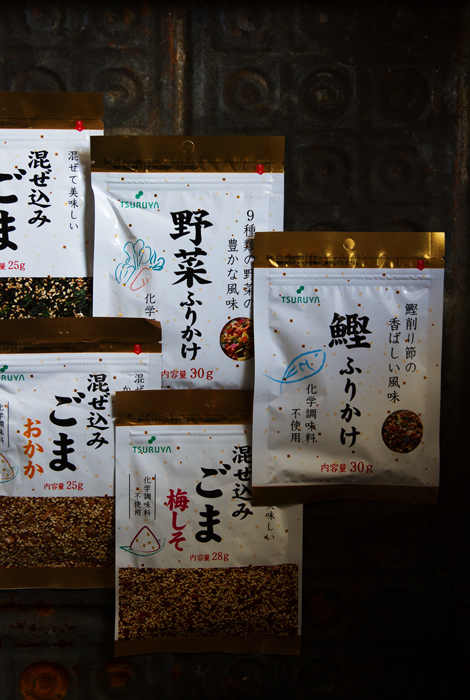 混ぜて美味しい
混ぜ込み
ご
25g
TSURUYA
9種類の野菜の
豊かな風味
野菜ふりかけ
化学
内容量 30g
TSURUYA
鰹削り節の
香ばしい風味
鰹ふりかけ
化学調味料
不使用
内容量 30g
混ぜ込み
ごま
おかか
内容量 25g
TSURUYA
美味しい
混ぜ込み
ごま
梅しそ
化学調味料
不使用
内容量 28g